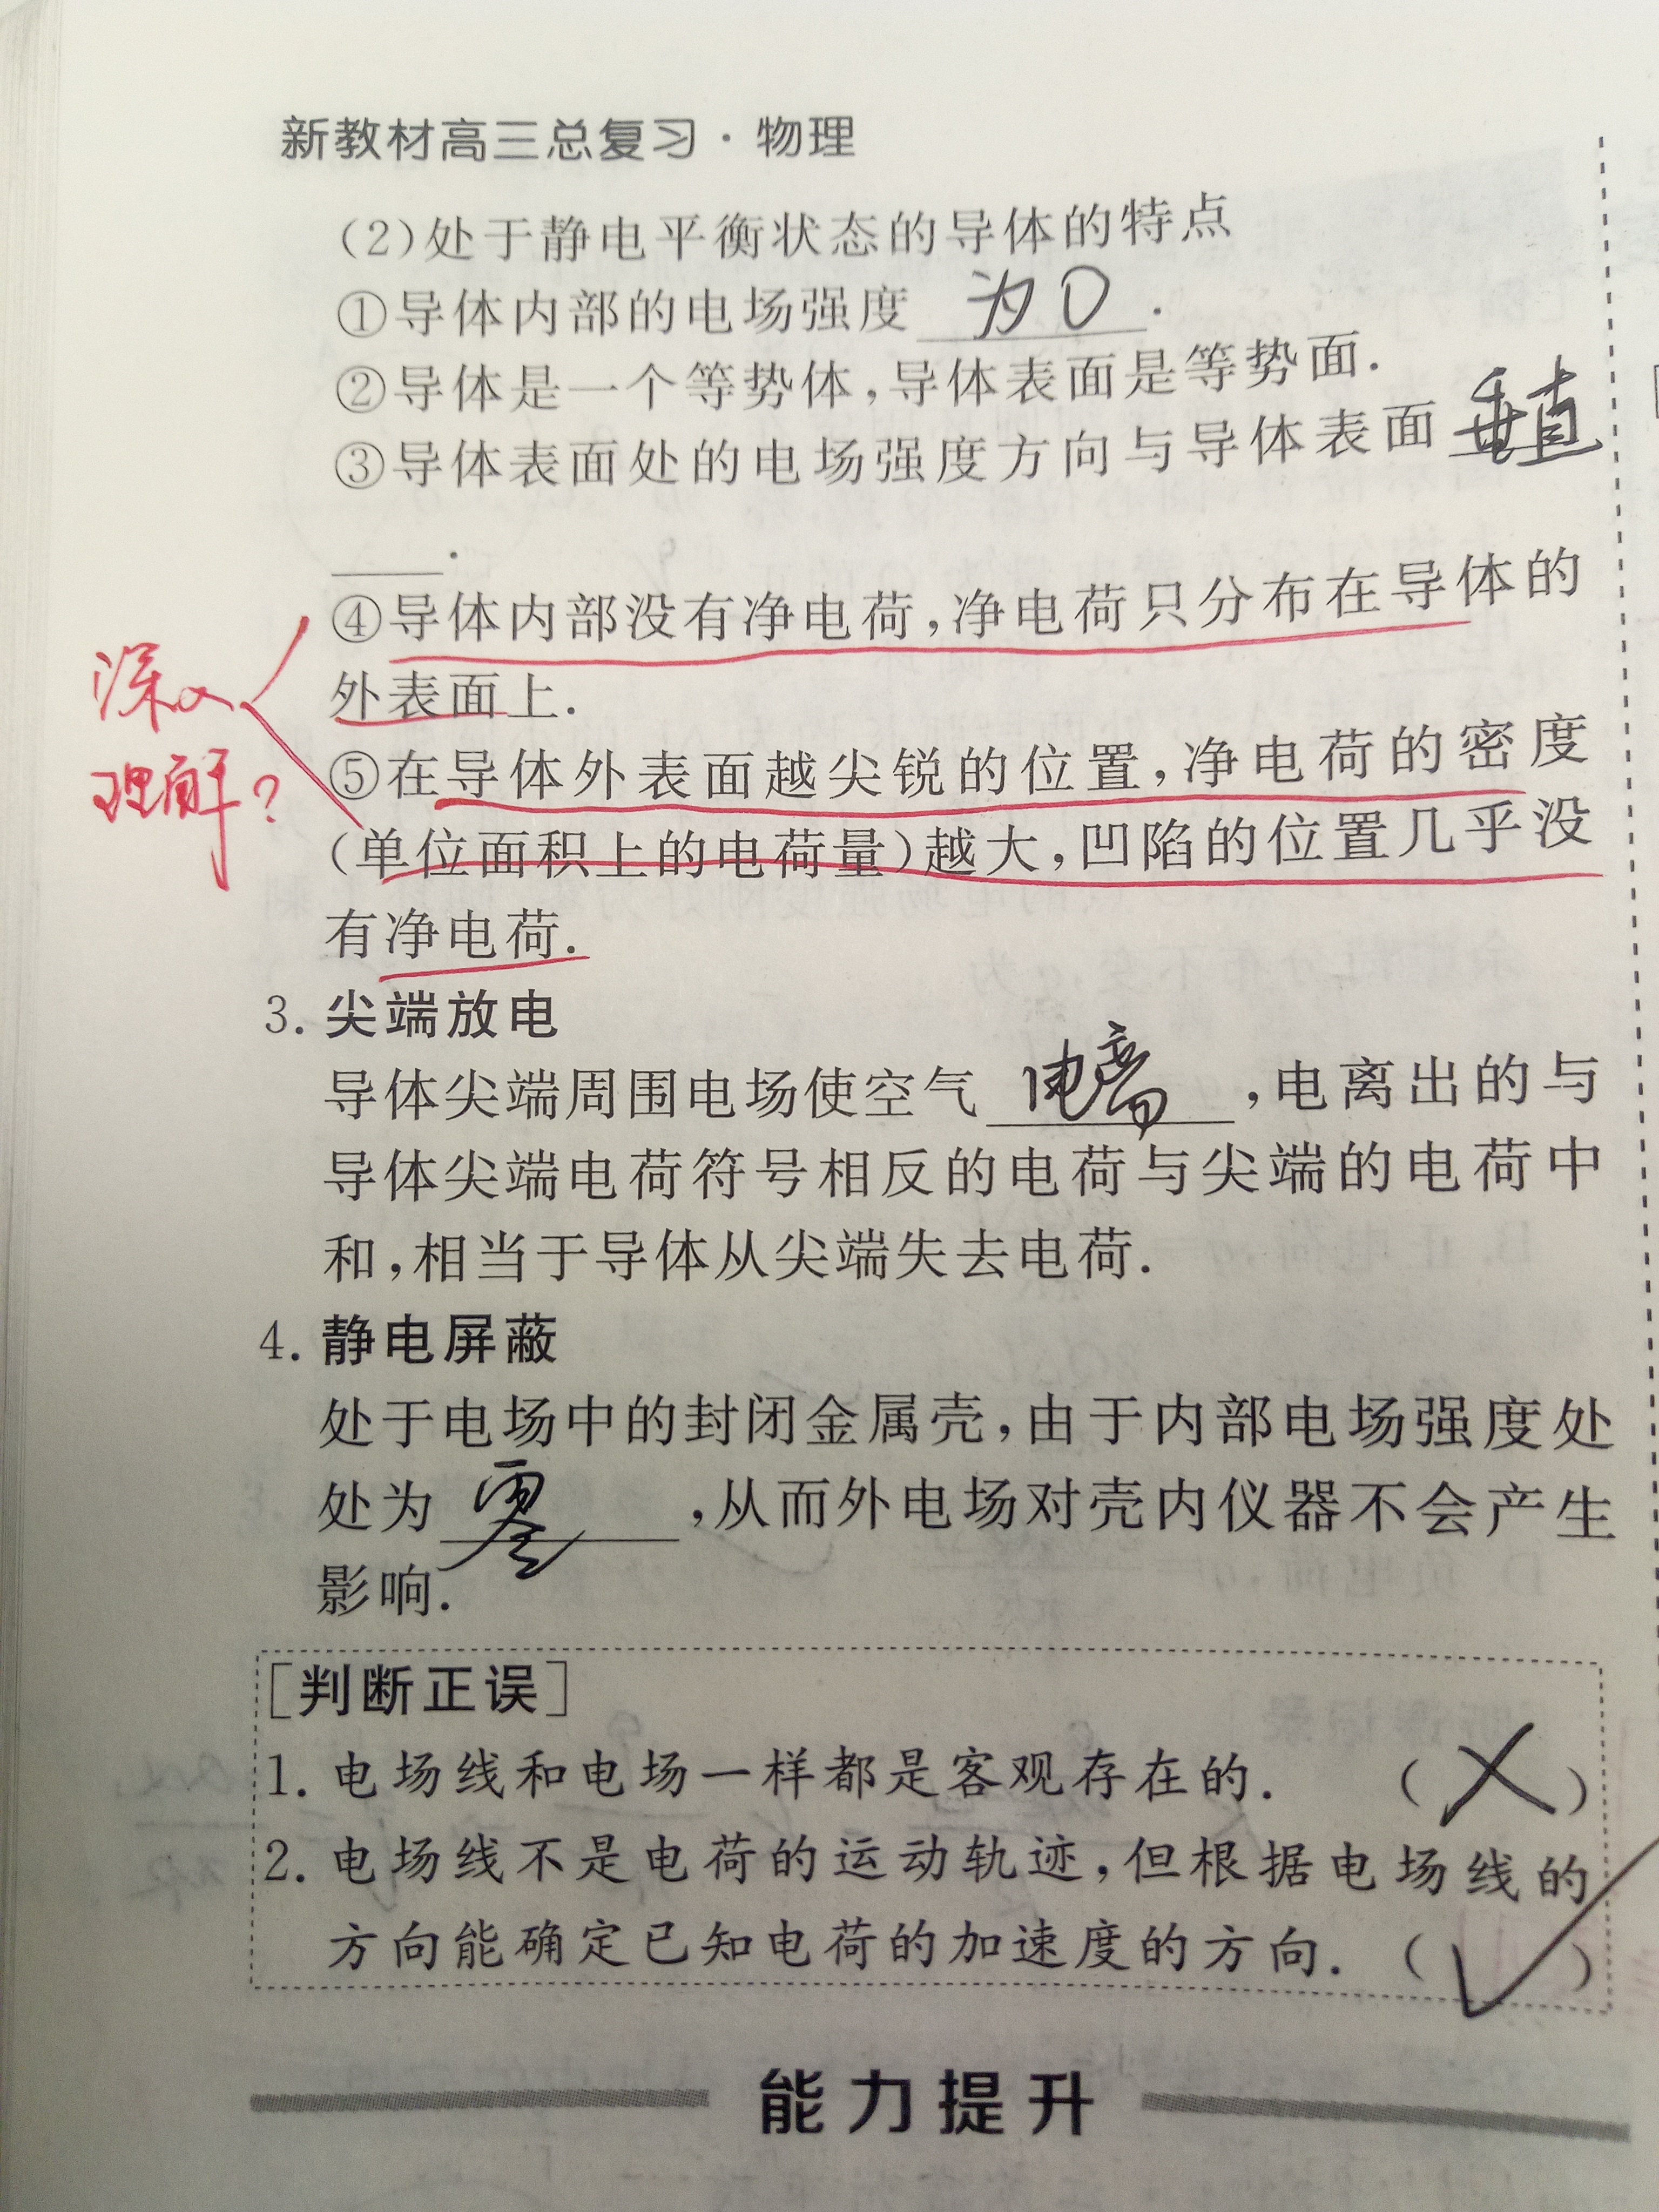 新教材高三总复习·物理
(2)处于静电平衡状态的导体的特点
①导体内部的电场强度 为0 .
②导体是一个等势体,导体表面是等势面.
③导体表面处的电场强度方向与导体表面 垂直
____.
④导体内部没有净电荷,净电荷只分布在导体的
外表面上.
深入
理解?
⑤在导体外表面越尖锐的位置,净电荷的密度
(单位面积上的电荷量)越大,凹陷的位置几乎没
有净电荷.
3. 尖端放电
导体尖端周围电场使空气 电离 ,电离出的与
导体尖端电荷符号相反的电荷与尖端的电荷中
和,相当于导体从尖端失去电荷.
4. 静电屏蔽
处于电场中的封闭金属壳,由于内部电场强度处
处为 零 ,从而外电场对壳内仪器不会产生
影响.
[判断正误]
1. 电场线和电场一样都是客观存在的. (×)
2. 电场线不是电荷的运动轨迹,但根据电场线的
方向能确定已知电荷的加速度的方向. (√)
能力提升